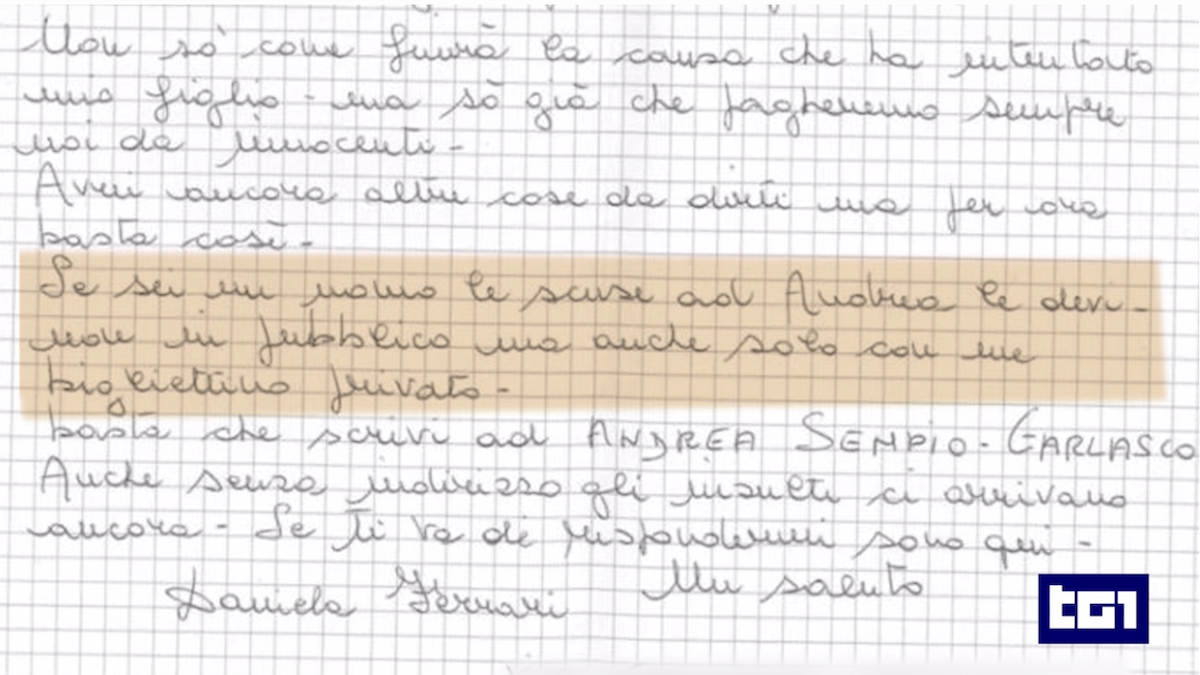 Non sò come finirà la causa che ha intentato
mio figlio - ma sò già che pagheremo sempre
noi da innocenti -
Avrei ancora altre cose da dirti ma per ora
basta così -
Se sei un uomo le scuse ad Andrea le devi -
non in pubblico ma anche solo con un
bigliettino privato -
basta che scrivi ad ANDREA SEMPIO - GARLASCO
Anche senza indirizzo gli insulti ci arrivano
ancora - Se ti va di rispondermi sono qui -
Un saluto
Daniela Ferrari
tG1